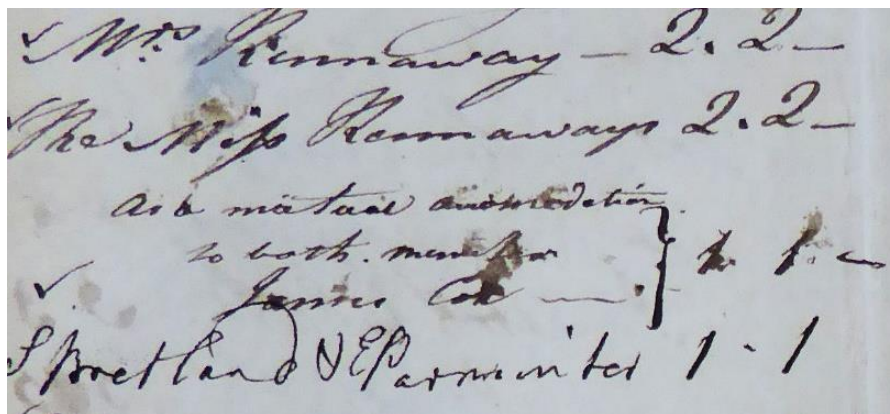 ✓ Mrs. Kennaway — 2. 2 —
✓ The Miss Kennaways 2. 2 —
As a mutual accomodation
to both.
✓. James Cox — } 1. 1. —
S Bretland & E Parminter 1 - 1